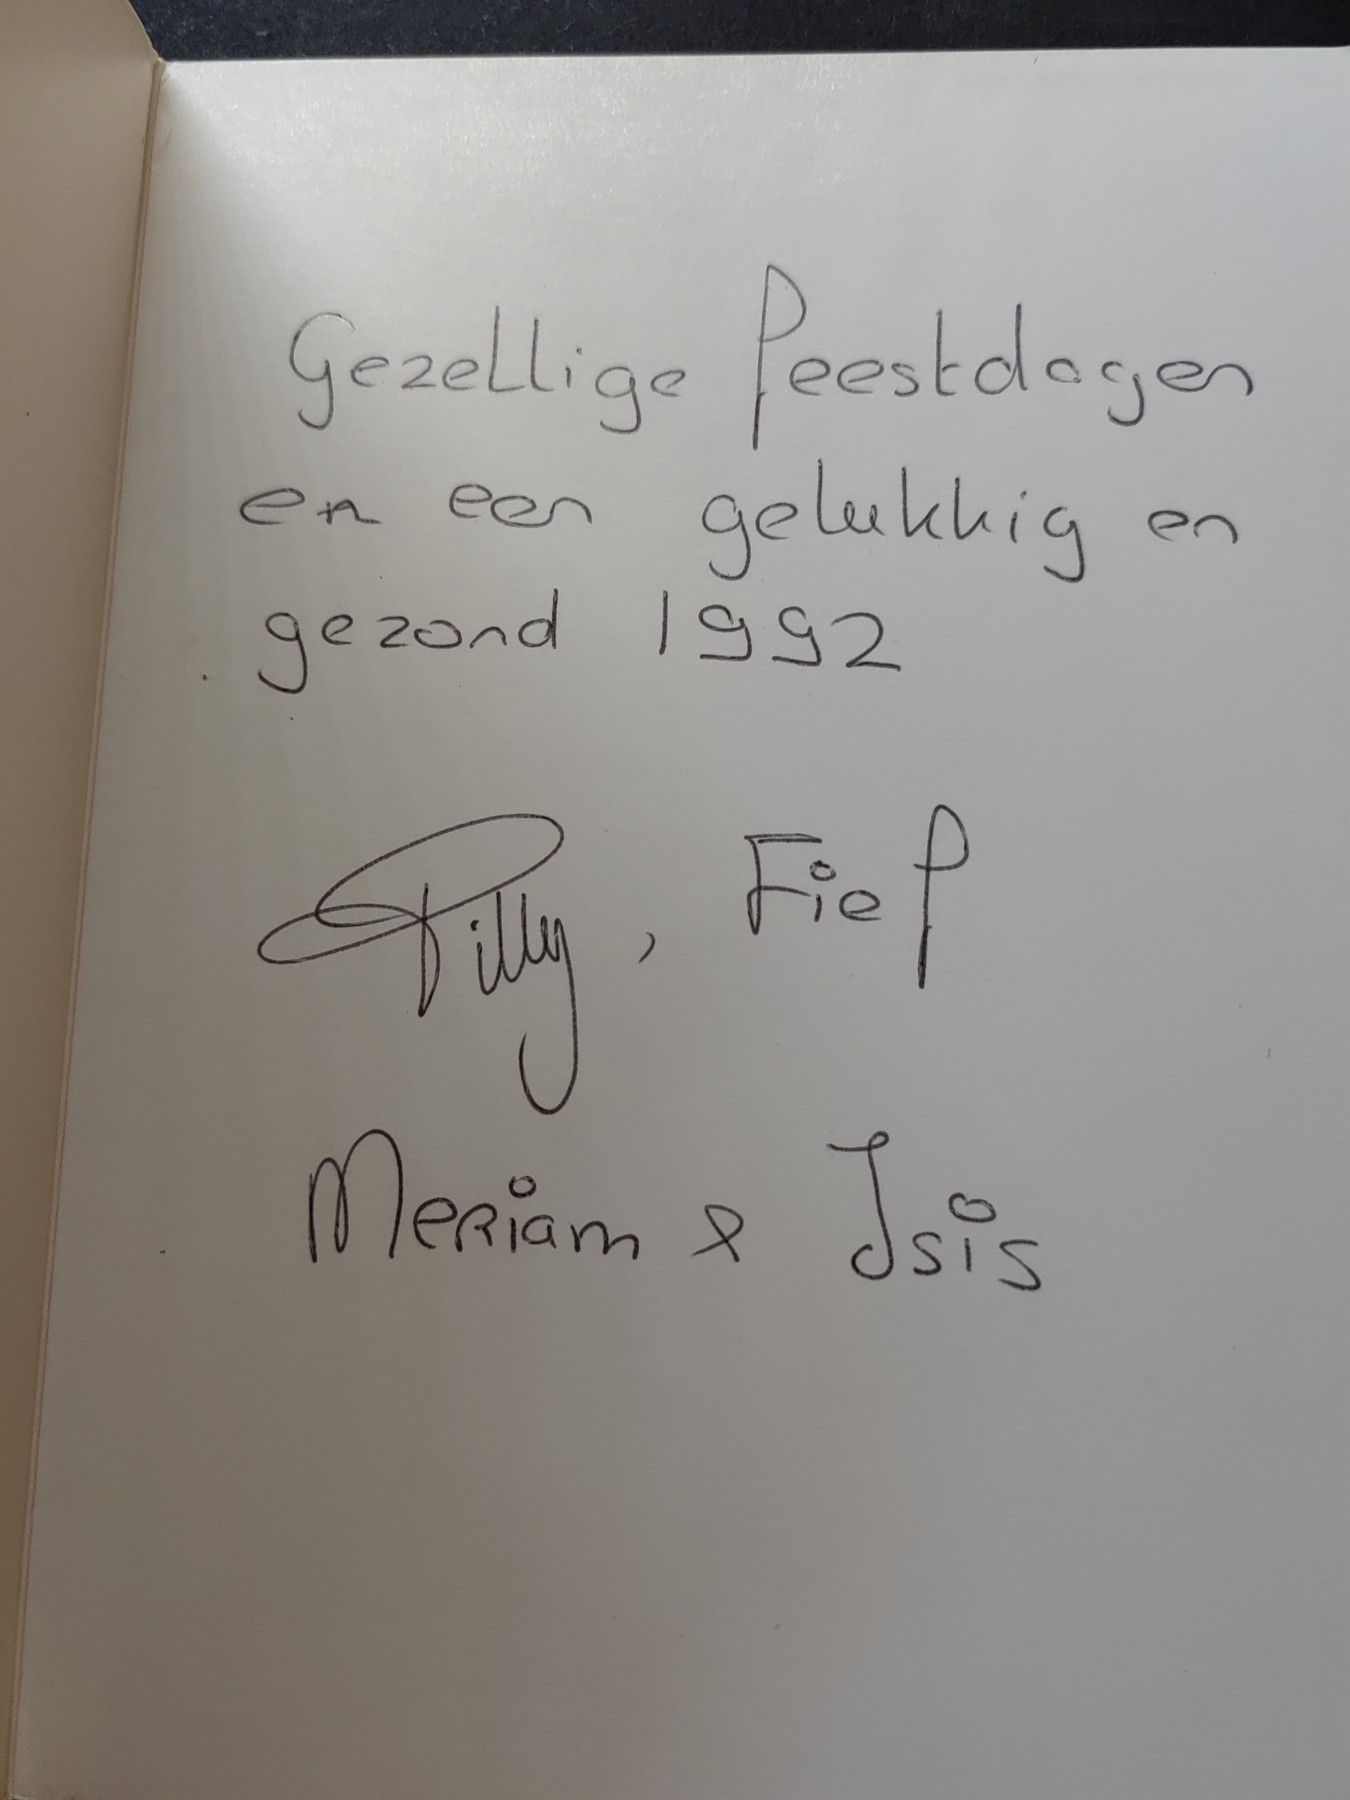 Gezellige feestdagen
en een gelukkig en
gezond 1992
Tilly, Fief
Meriam & Isis